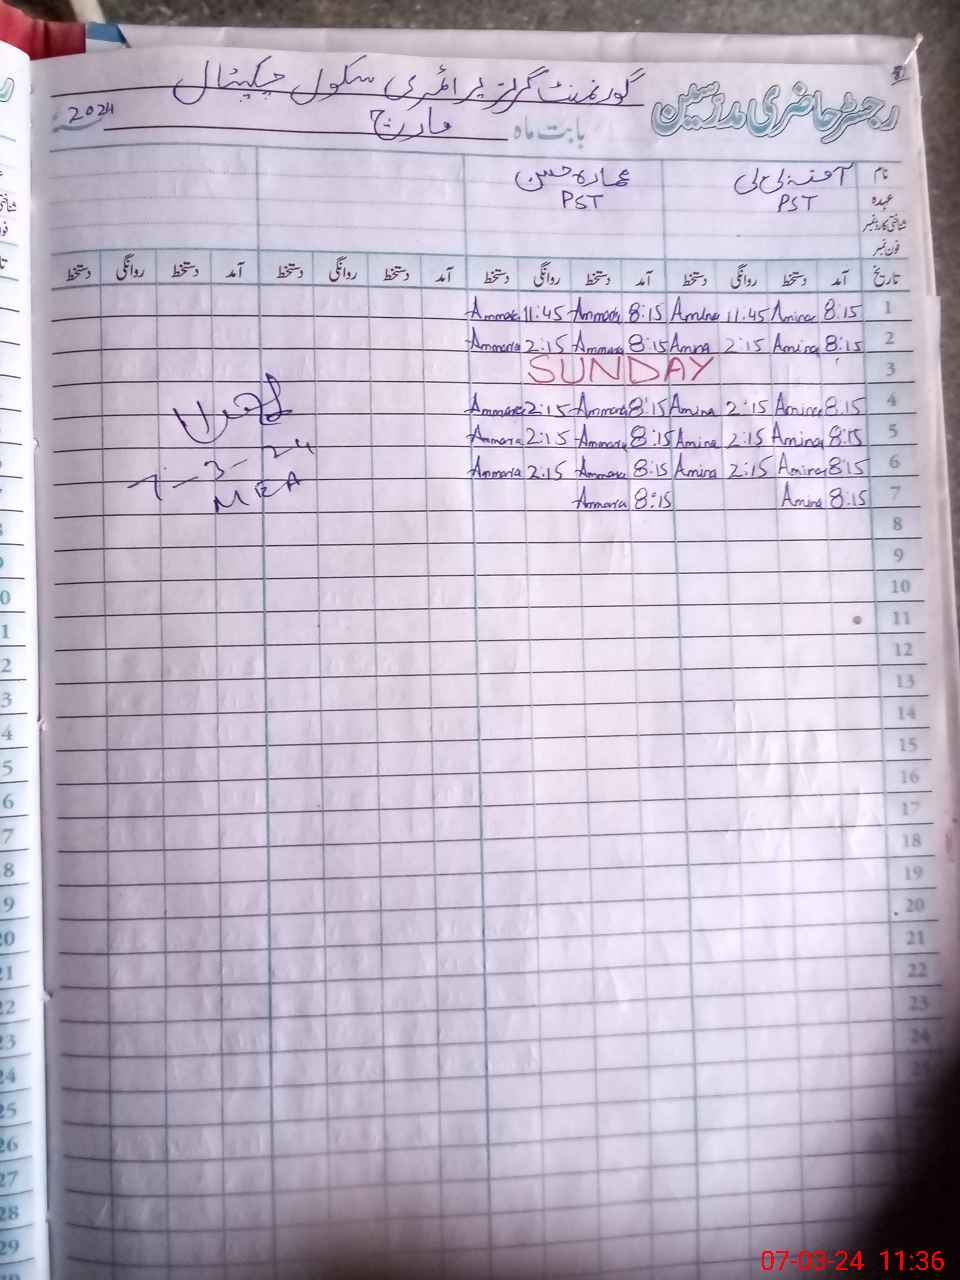 رجسٹر حاضری مدرسین
گورنمنٹ گرلز پرائمری سکول چیکہٹال
بابت ماہ مارچ 2024
نام آمنہ بی بی عمارہ حسن
عہدہ PST PST
شناختی کارڈ نمبر
فون نمبر
تاریخ آمد دستخط روانگی دستخط آمد دستخط روانگی دستخط آمد دستخط روانگی دستخط آمد دستخط روانگی دستخط
1 8:15 Amina 11.45 Amina 8:15 Ammara 11:45 Ammara
2 8:15 Amina 2:15 Amina 8:15 Ammara 2:15 Ammara
3 SUNDAY
4 8.15 Amina 2:15 Amina 8:15 Ammara 2:15 Ammara
5 8:15 Amina 2:15 Amina 8:15 Ammara 2:15 Ammara
6 8:15 Amina 2:15 Amina 8:15 Ammara 2:15 Ammara
7 8:15 Amina 8:15 Ammara
7-3-24
MEA
8
9
10
11
12
13
14
15
16
17
18
19
20
21
22
23
24
25
07-03-24 11:36